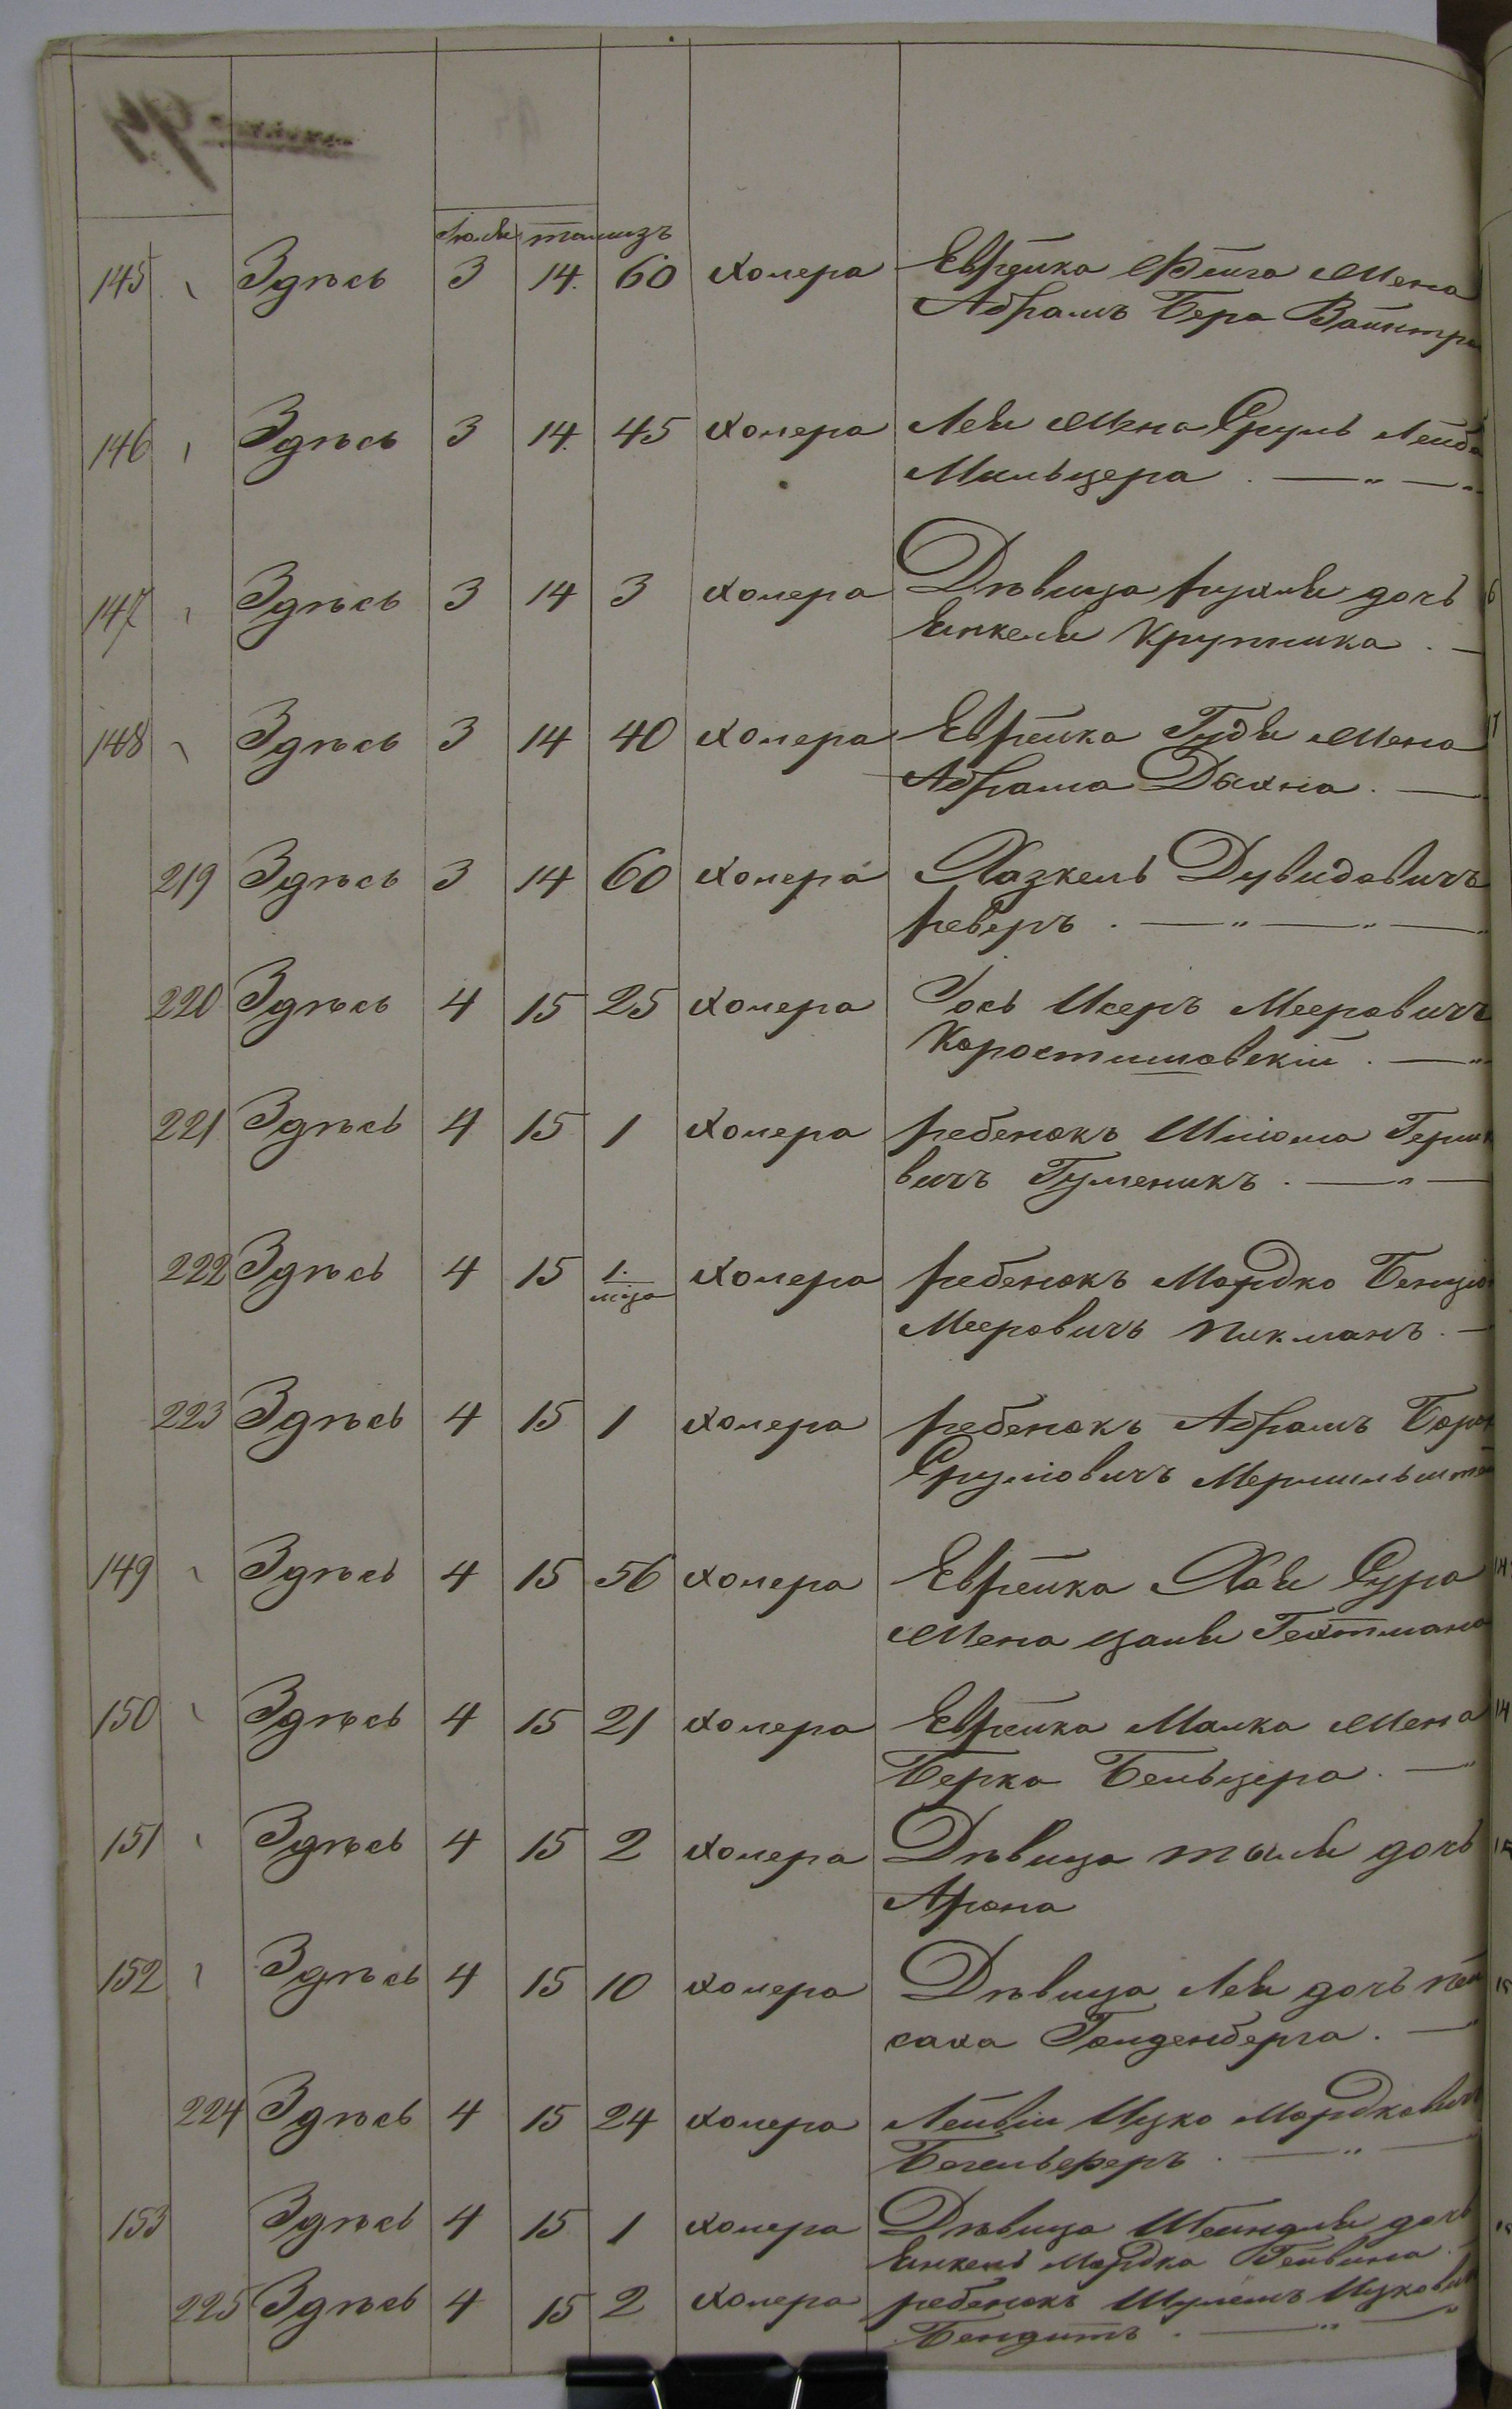 Июля тамизъ
145 Здѣсь 3 14. 60 холера Еврейка Фейга жена
Абрамъ Бера Вайнтра
146 Здѣсь 3 14 45 холера Лея жена Сруль Лейба
Мильцера . — " — "
147 Здѣсь 3 14 3 холера Дѣвица Рухля дочь
Янкеля Крупника . —
148 Здѣсь 3 14 40 холера Еврейка Гудя жена
Абрама Дахна . —
219 Здѣсь 3 14 60 холера Хазкель Дувидовичъ
Реверъ . — " — " — "
220 Здѣсь 4 15 25 холера Іось Исеръ Мееровичъ
Коростишовскій . — "
221 Здѣсь 4 15 1 холера ребенокъ Шліома Герш
вичъ Гуменикъ . — " —
222 Здѣсь 4 15 1. мца холера ребенокъ Мордко Бенціо
Мееровичъ Пикманъ . —
223 Здѣсь 4 15 1 холера ребенокъ Абрамъ Борох
Сруліовичъ
149 Здѣсь 4 15 56 холера Еврейка Хая Сура
жена Цаля Гехтмана
150 Здѣсь 4 15 21 холера Еврейка Малка жена
Берка Бельцера . — "
151 Здѣсь 4 15 2 холера Дѣвица тыля дочь
Арона
152 Здѣсь 4 15 10 холера Дѣвица Лея дочь Пей
саха Голденберга . — "
224 Здѣсь 4 15 24 холера Лейвiи Ицко Мордковичъ
. — " —
153 Здѣсь 4 15 1 холера Дѣвица Шейндля дочь
Янкель Мордка Гейвина .
225 Здѣсь 4 15 2 холера ребенокъ Шулемъ Ицкович
Бендитъ . — " — "